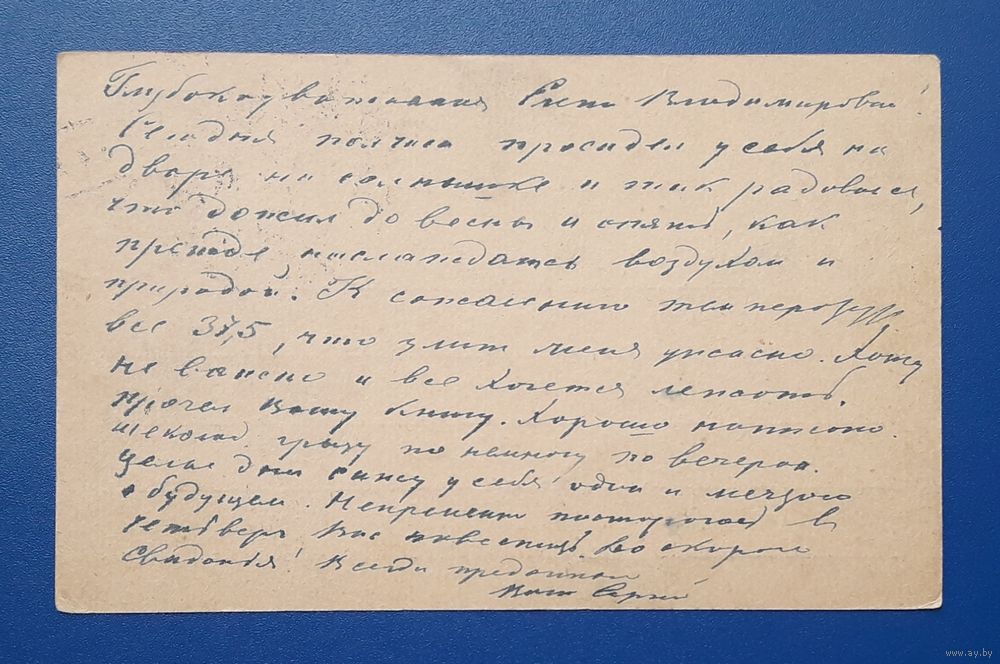 Глубокоуважаемая Владимировна!
Сегодня полчаса просидел у себя на
дворе на солнышке и так радовался,
что дожил до весны и опять, как
прежде, наслаждаюсь воздухом и
природой. К сожалению температура
все 37,5, что злит меня ужасно. Хожу
не важно и все хочется лежать.
Прочел Вашу книгу. Хорошо написано.
Шеколад грызу по немногу по вечерам.
Целые дни сижу у себя один и мечтаю
о будущем. Непременно постараюсь в
четверг Вас навестить. До скорого
свиданья! Всегда преданный
Ваш Сергей
www.ay.by